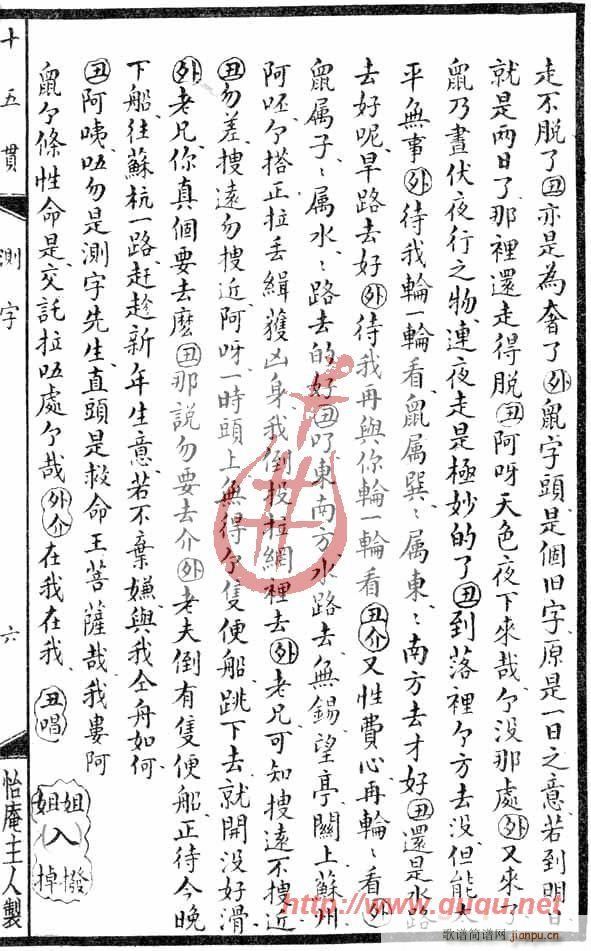 走不脱了、丑亦是為奢了、外鼠字頭是個旧字原是一日之意若到明日
就是两日了那裡還走得脱、丑阿呀天色夜下來哉、个没那處、外又來了、
鼠乃晝伏夜行之物、連夜走是極妙的了、丑到落裡个方去没但能太
平無事、外待我輪一輪看、鼠属巽、巽属東、東南方去才好、丑還是水路
去好呢旱路去好、外待我再與你輪一輪看、丑介又性費心再輪、輪看、外
鼠属子、子属水、水路去的好、丑叮東南方水路去、無錫望亭關上蘇州
阿呸个搭正拉丢緝獲凶身、我倒投拉網裡去、外老兄可知搜遠不搜近
丑勿差、搜遠勿搜近阿呀一時頭上無得个隻便船、跳下去就開没好滑
外老兄你真個要去麽、丑那説勿要去介、外老夫倒有隻便船、正待今晚
下船、往蘇杭一路、赶趁新年生意、若不棄嫌、與我仝舟如何
丑阿咦、呒勿是測字先生、直頭是救命王菩薩哉、我婁阿
鼠个條性命是交託拉呒處个哉、外介在我在我、丑唱
姐姐入撥掉
十五貫
測字
六
怡庵主人製
http://www.guqu.net
歌谱简谱网
jianpu.cn